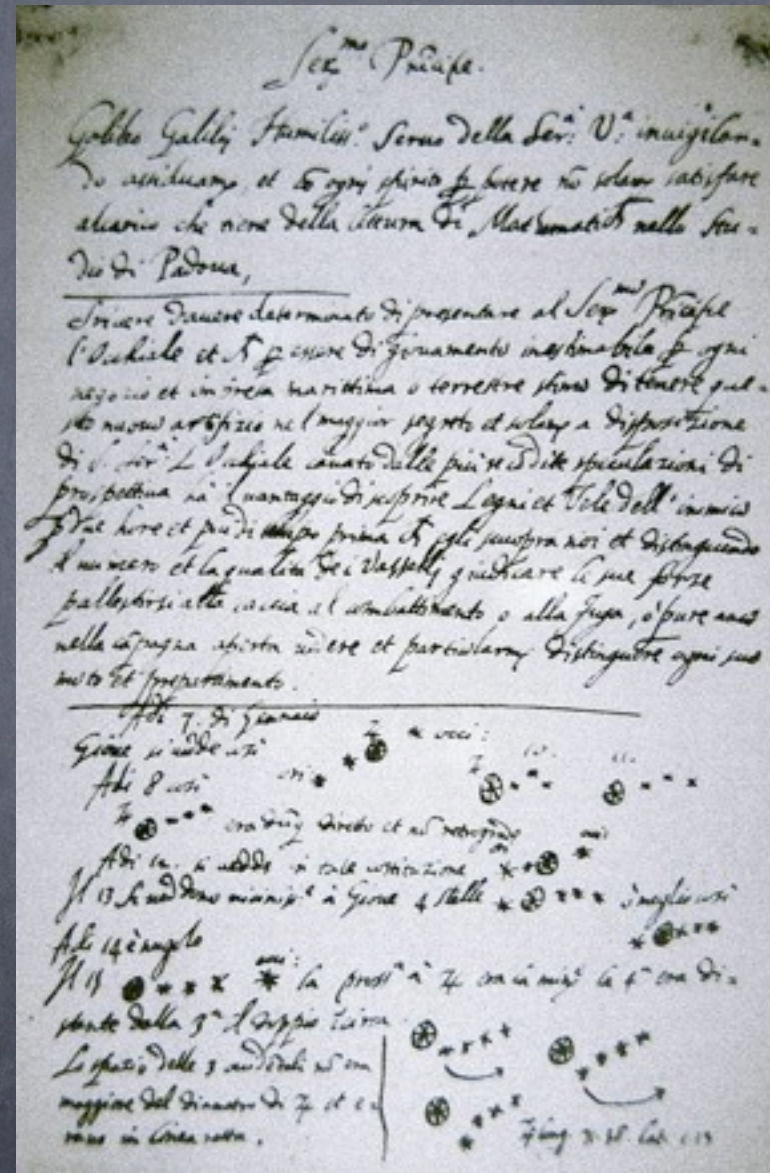 Ser.mo Principe.
Galileo Galilej Humiliss.o Seruo della Ser.a V.a inuigilan-
do assiduam.te, et cō ogni spirito p potere nō solam satisfare
al carico che tiene della lettura di Mathematich nello Stu-
dio di Padoua,
Scriuere dauere determinato di presentare al Ser.mo Principe
l'Occhiale et p essere di giouamento inestimabile p ogni
negozio et impresa marittima o terrestre stimo di tenere que-
sto nuouo artifizio nel maggior segreto et solam a disposizione
di S. Ser.a L'Occhiale cauato dalle piu recōdite speculazioni di
prospettiua hà il uantaggio di scoprire Legni et Vele dell' inimico
due hore et piu di tempo prima egli scuopra noi et distinguendo
il numero et la qualita de i Vasselli giudicare le sue forze
pallestirsi alla caccia al combattimento o alla fuga, o pure anco
nella cāpagna aperta uedere et particolarm distinguere ogni suo
moto et preparamento.
Adi 7. di Gennaio
Gioue si uede così
Adi 8 così
era dūq diretto et nō retrogrado
Adi 12. si uedde in tale costituzione
Il 13 si ueddono à Gioue 4 stelle ò meglio così
Adi 14 è nugolo
Il 15 la pross.a à ♃ era la min.e la 4.a era di-
stante dalla 3.a il doppio circa
Lo spazio delle 3 occidentali nō era
maggiore del diametro di ♃ et e-
rano in linea retta.
♃ long.